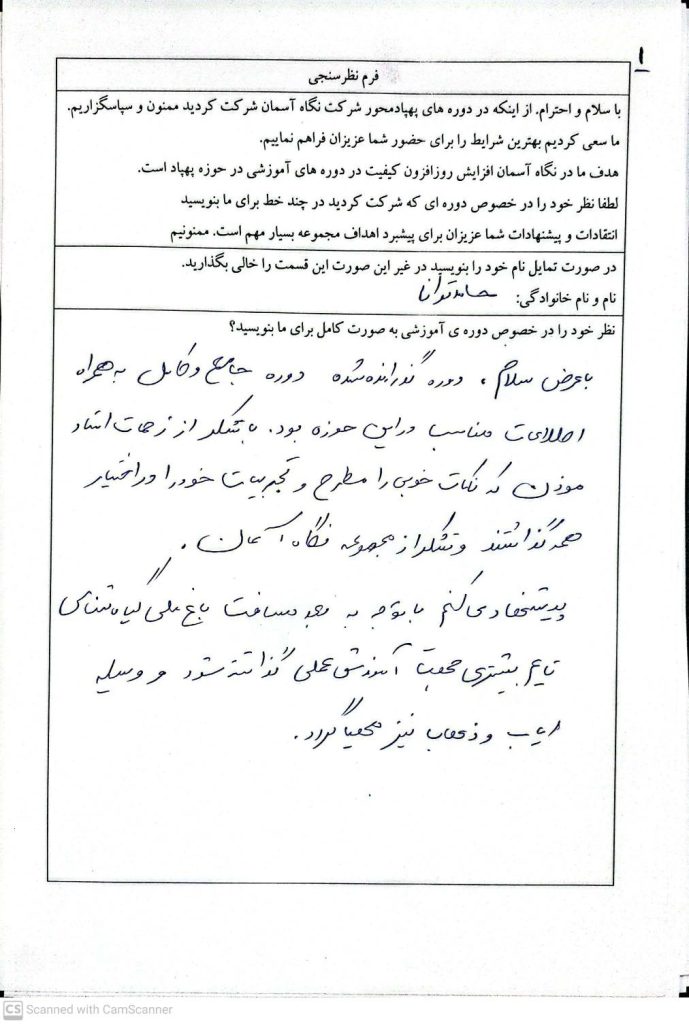 ۱
فرم نظرسنجی
با سلام و احترام. از اینکه در دوره های پهپادمحور شرکت نگاه آسمان شرکت کردید ممنون و سپاسگزاریم.
ما سعی کردیم بهترین شرایط را برای حضور شما عزیزان فراهم نماییم.
هدف ما در نگاه آسمان افزایش روزافزون کیفیت در دوره های آموزشی در حوزه پهپاد است.
لطفا نظر خود را در خصوص دوره ای که شرکت کردید در چند خط برای ما بنویسید
انتقادات و پیشنهادات شما عزیزان برای پیشبرد اهداف مجموعه بسیار مهم است. ممنونیم
در صورت تمایل نام خود را بنویسید در غیر این صورت این قسمت را خالی بگذارید.
نام و نام خانوادگی: حامد توانا
نظر خود را در خصوص دوره ی آموزشی به صورت کامل برای ما بنویسید؟
با عرض سلام، دوره گذرانده شده دوره جامع و کامل به همراه
اطلاعات مناسب در این حوزه بود. با تشکر از زحمات استاد
موذن که نکات خوبی را مطرح و تجربیات خود را در اختیار
همه گذاشتند و تشکر از مجموعه نگاه آسمان.
پیشنهاد می کنم با توجه به بعد مسافت باغ ملی گیاه شناسی
تایم بیشتری جهت آموزش عملی گذاشته شود و وسیله
ایاب و ذهاب نیز مهیا گردد.
CS Scanned with CamScanner